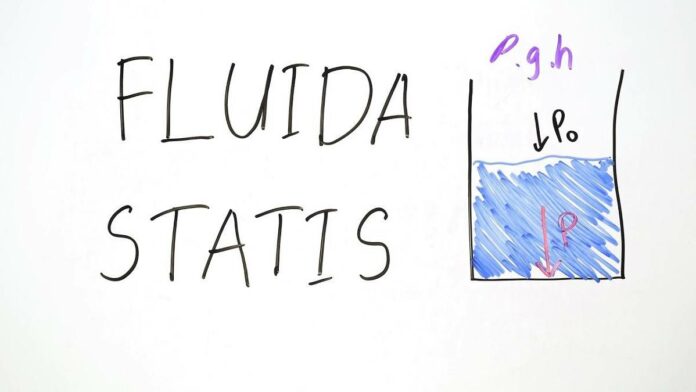 FLUIDA
STATIS
ρ.g.h
P₀
P